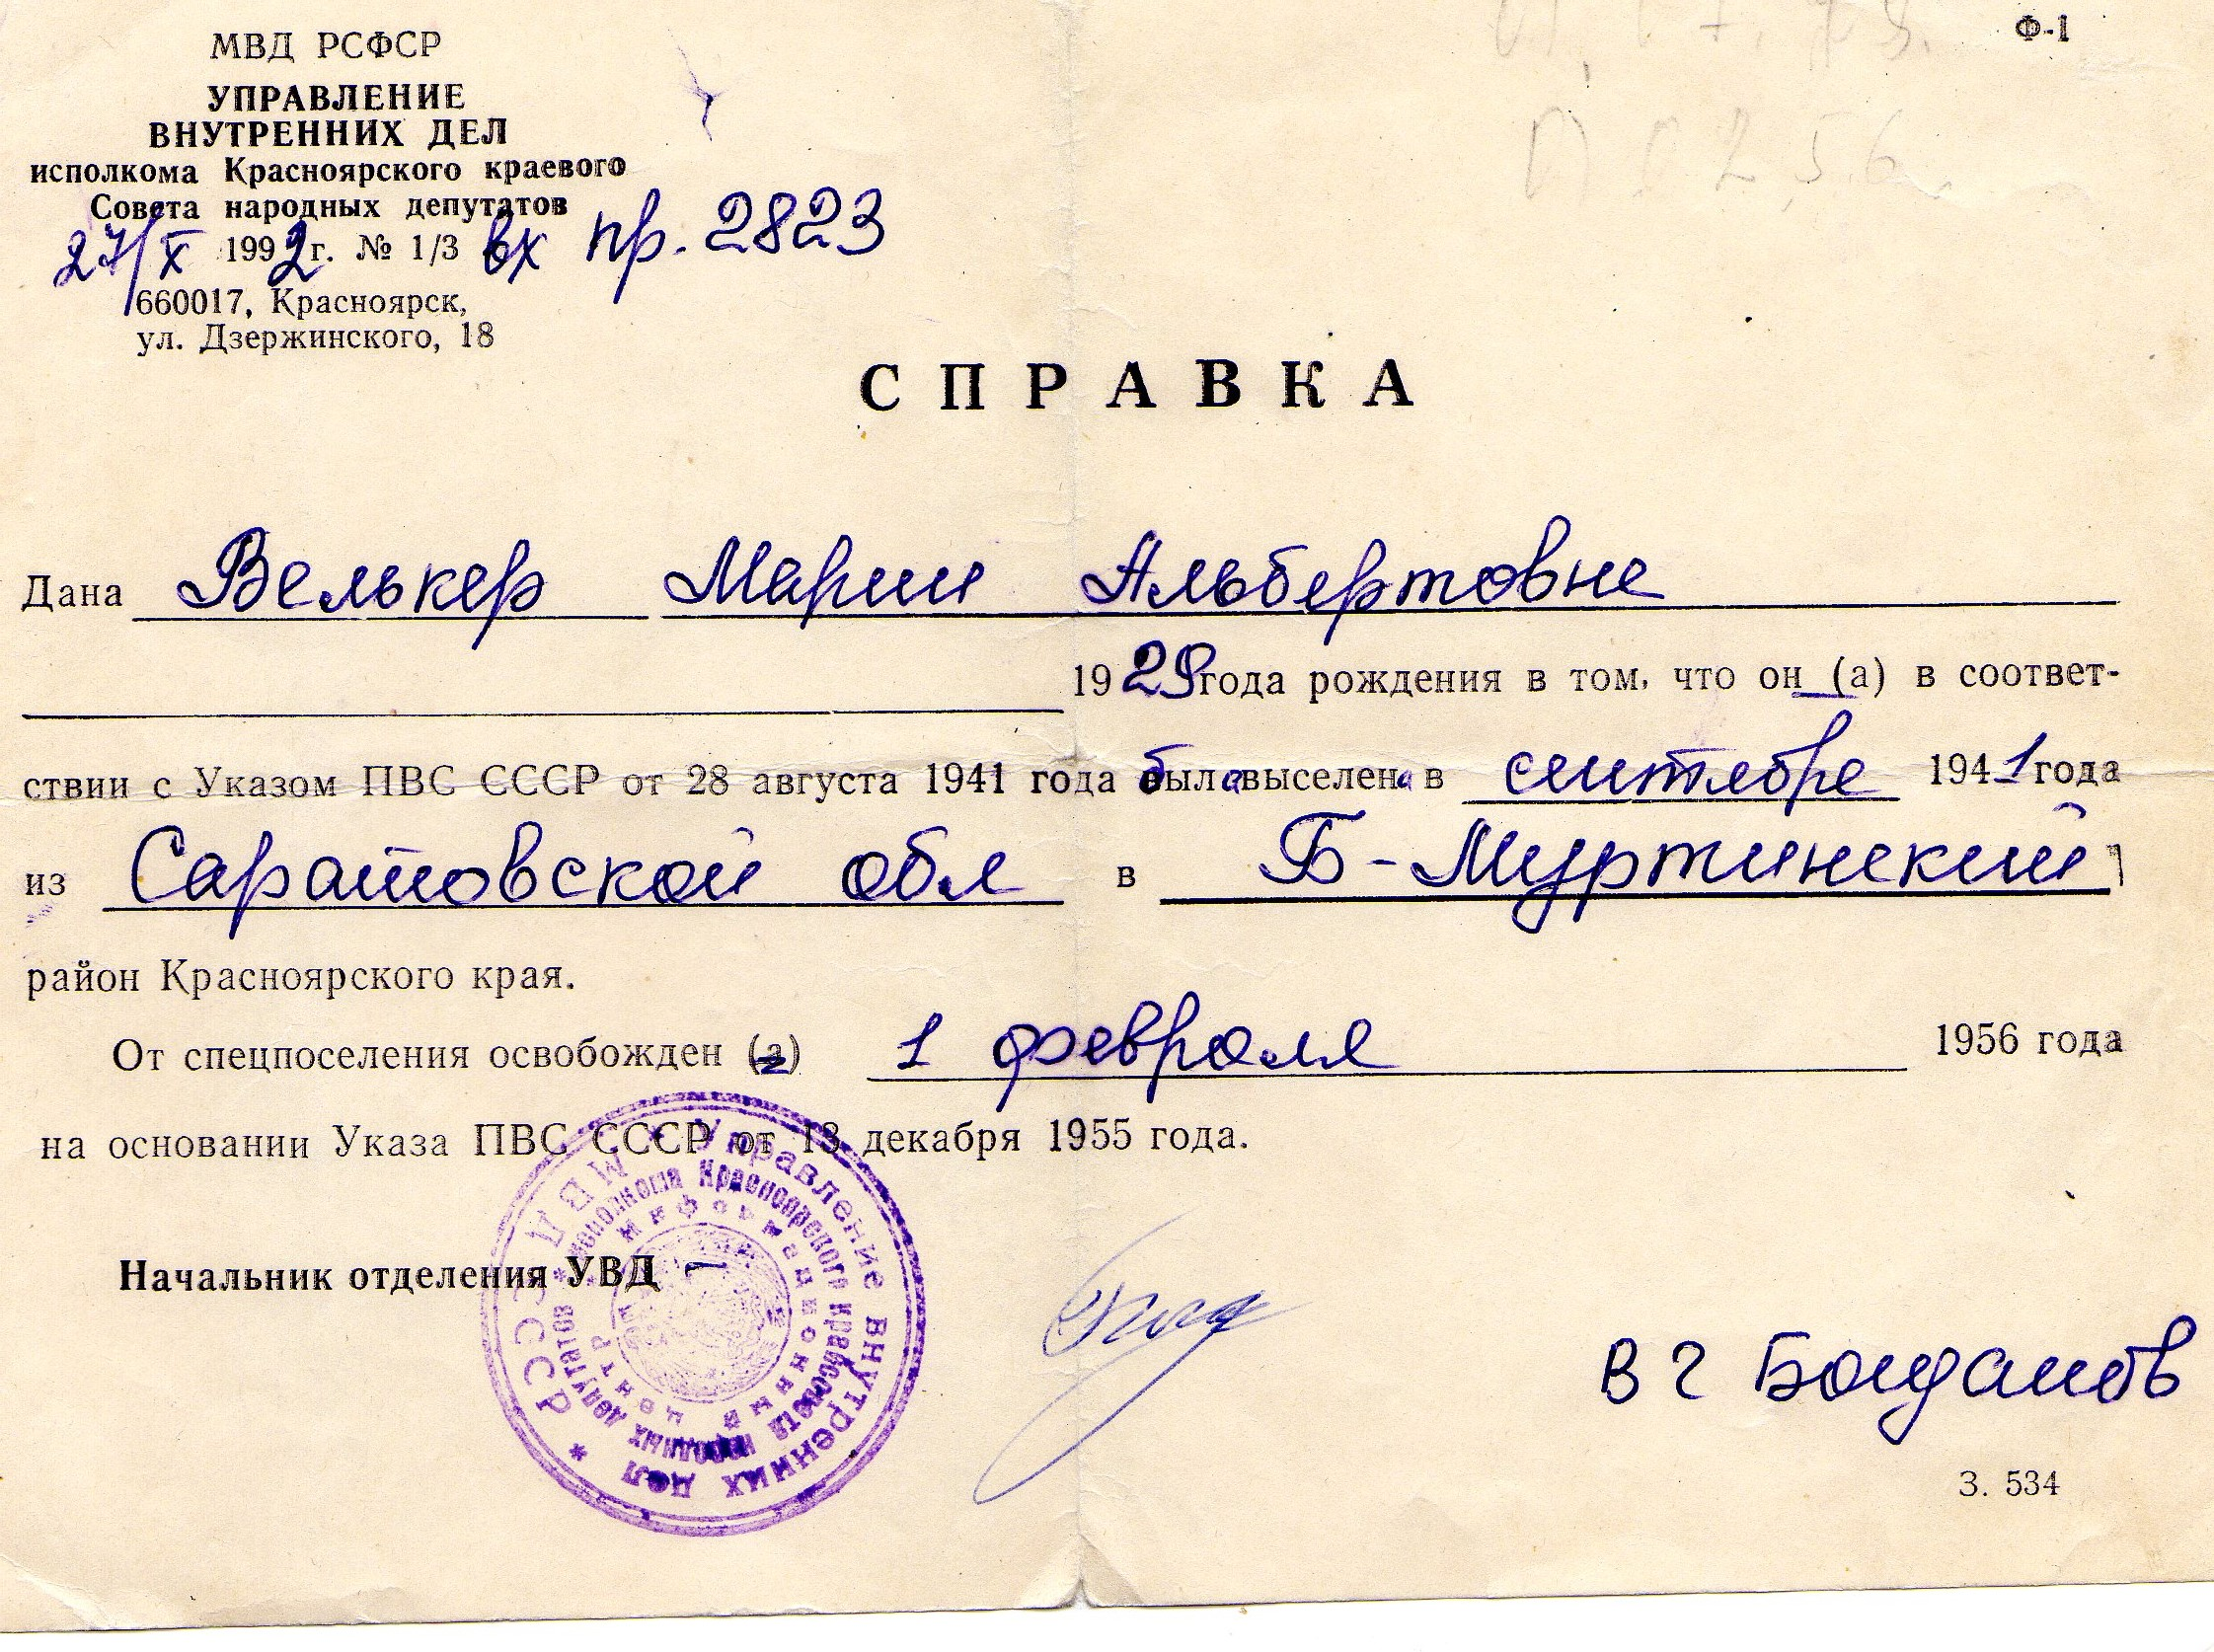 Ф-1
МВД РСФСР
УПРАВЛЕНИЕ
ВНУТРЕННИХ ДЕЛ
исполкома Красноярского краевого
Совета народных депутатов
27/X 1992 г. № 1/3 вх пр. 2823
660017, Красноярск,
ул. Дзержинского, 18
СПРАВКА
Дана Велькер Марии Альбертовне
1929 года рождения в том, что он (а) в соответ-
ствии с Указом ПВС СССР от 28 августа 1941 года была выселена в сентябре 1941 года
из Саратовской обл в Б-Муртинский
район Красноярского края.
От спецпоселения освобожден (а) 1 февраля 1956 года
на основании Указа ПВС СССР от 13 декабря 1955 года.
Начальник отделения УВД
В Г Богданов
З. 534
МВД СССР * Управление внутренних дел *
исполкома Красноярского краевого Совета народных депутатов *
Информационный центр